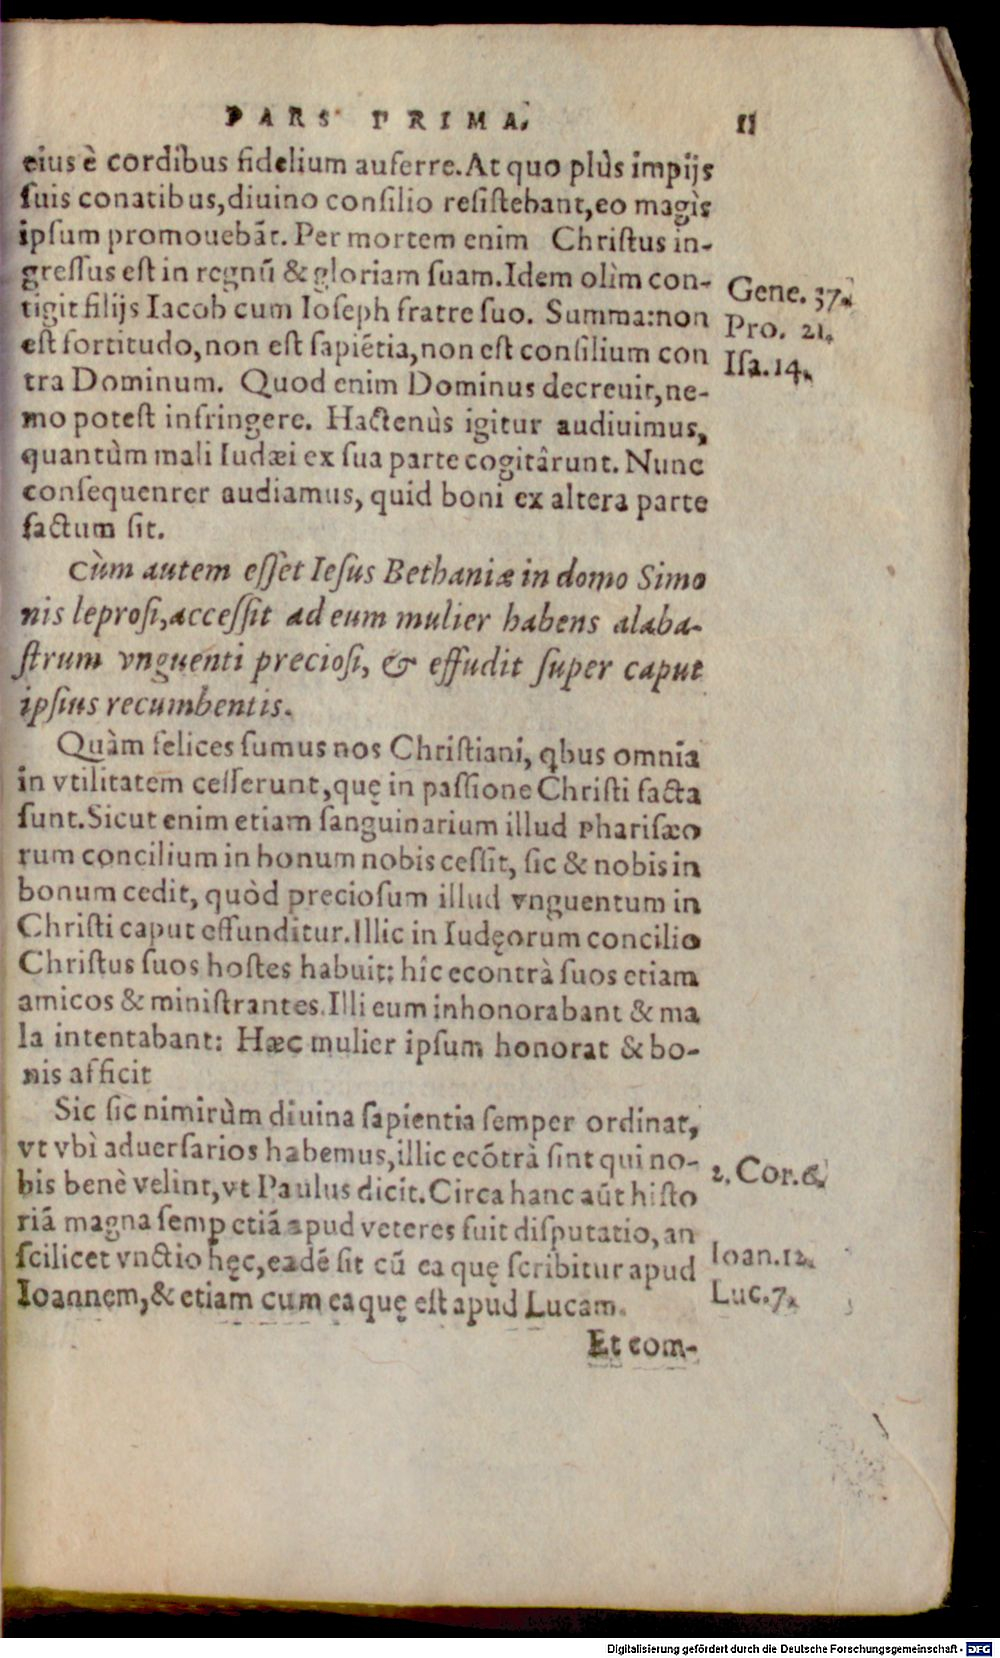 PARS PRIMA. 11
eius è cordibus fidelium auferre. At quo plùs impijs
suis conatibus, diuino consilio resistebant, eo magis
ipsum promouebãt. Per mortem enim Christus in-
gressus est in regnũ & gloriam suam. Idem olìm con-
tigit filijs Iacob cum Ioseph fratre suo. Summa: non
est fortitudo, non est sapiẽtia, non est consilium con
tra Dominum. Quod enim Dominus decreuit, ne-
mo potest infringere. Hactenùs igitur audiuimus,
quantùm mali Iudæi ex sua parte cogitârunt. Nunc
consequenrer audiamus, quid boni ex altera parte
factum sit.
Gene. 37.
Pro. 21.
Isa. 14.
Cùm autem esset Iesus Bethaniæ in domo Simo
nis leprosi, accessit ad eum mulier habens alaba-
strum vnguenti preciosi, & effudit super caput
ipsius recumbentis.
Quàm felices sumus nos Christiani, qbus omnia
in vtilitatem cesserunt, quę in passione Christi facta
sunt. Sicut enim etiam sanguinarium illud Pharisæo
rum concilium in bonum nobis cessit, sic & nobis in
bonum cedit, quòd preciosum illud vnguentum in
Christi caput effunditur. Illic in Iudęorum concilio
Christus suos hostes habuit: hîc econtrà suos etiam
amicos & ministrantes. Illi eum inhonorabant & ma
la intentabant: Hæc mulier ipsum honorat & bo-
nis afficit
Sic sic nimirùm diuina sapientia semper ordinat,
vt vbì aduersarios habemus, illic ecõtrà sint qui no-
bis benè velint, vt Paulus dicit. Circa hanc aũt histo
riã magna semp etiã apud veteres fuit disputatio, an
scilicet vnctio hęc, eadẽ sit cũ ea quę scribitur apud
Ioannem, & etiam cum ea quę est apud Lucam.
2. Cor. 6.
Ioan. 12.
Luc. 7.
Et com-
Digitalisierung gefördert durch die Deutsche Forschungsgemeinschaft - DFG